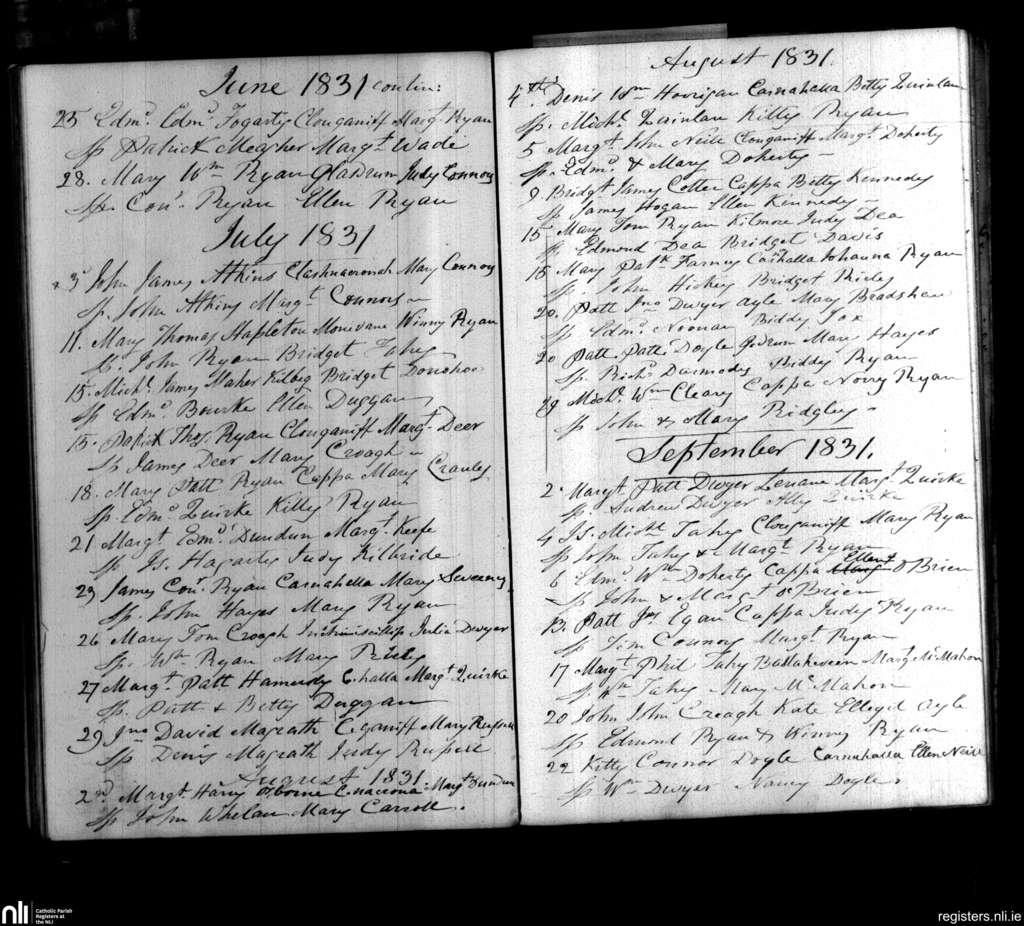 June 1831 contin:
25 Edmd. Edmd. Fogarty Clouganiff Margt. Ryan
Sp Patrick Meagher Margt. Wade
28. Mary Wm Ryan Glasdrum Judy Connors
Sp. Conr. Ryan Ellen Ryan
July 1831
3d John James Atkins Clashnacronah Mary Connors
Sp. John Atkins Margt. Connors
11. Mary Thomas Stapleton Monevane Winny Ryan
Sp. John Ryan Bridget Fahy
15. Michl. James Maher Kilbeg Bridget Donohoe
Sp Edmd. Bourke Ellen Duggan
15. Patrick Thos. Ryan Clouganiff Margt. Deer
Sp James Deer Mary Croagh
18. Mary Patt Ryan Cappa Mary Crauley
Sp. Edmd. Quirke Kitty Ryan
21 Margt Edmd. Dundun Margt. Keefe
Sp Js. Hagarty Judy Kilbride
23 James Conr. Ryan Carnahella Mary Sweeney
Sp. John Hayes Mary Ryan
26 Mary Tom Croagh Julia Dwyer
Sp. Wm. Ryan Mary
27 Margt. Patt Hamerdy C.halla Margt. Quirke
Sp. Patt & Betty Duggan
29 Jno David Magrath C.ganiff Mary Russell
Sp Denis Magrath Judy
August 1831
2d. Margt. Harry Osborne Margt. Dundun
Sp John Whelan Mary Carroll.
August 1831.
4th. Denis Wm Horrigan Carnahalla Betty Quinlan
Sp. Michl. Quinlan Kitty Ryan
5 Margt. John Neill Clouganiff Margt. Doherty
Sp. Edmd. & Mary Doherty
9 Bridgt James Cotter Cappa Betty Kennedy
Sp James Hogan Ellen Kennedy
15 Mary Tom Ryan Kilmore Judy Dea
Sp Edmond Dea Bridget Davis
15 Mary Patk Carhalla Johanna Ryan
Sp. John Hickey Bridget
20. Patt Jno Dwyer Ayle Mary Bradshaw
Sp Edmd. Noonan Biddy Fox
20 Patt Patt Doyle G.drum Mary Hayes
Sp Richd. Darmody Biddy Ryan
29 Michl. Wm Cleary Cappa Norry Ryan
Sp John & Mary Ridgley
September 1831.
2. Margt. Patt Dwyer Margt. Quirke
Sp. Andrew Dwyer Ally Quirke
4 Js. Michl. Fahy Clouganiff Mary Ryan
Sp John Fahy & Margt. Ryan
6 Edmd. Wm Doherty Cappa Ellen O Brien
Sp John & Margt O'Brien
13. Patt Js Egan Cappa Judy Ryan
Sp Tim Connors Margt. Ryan
17 Margt. Phil Fahy Margt. McMahon
Sp Wm Fahy Mary McMahon
20 John John Creagh Kate Ayle
Sp Edmund Ryan & Winny Ryan
22 Kitty Connor Doyle Carnahalla Ellen Neill
Sp Wm Dwyer Nancy Doyle.
nli
Catholic Parish
Registers at
the NLI
registers.nli.ie